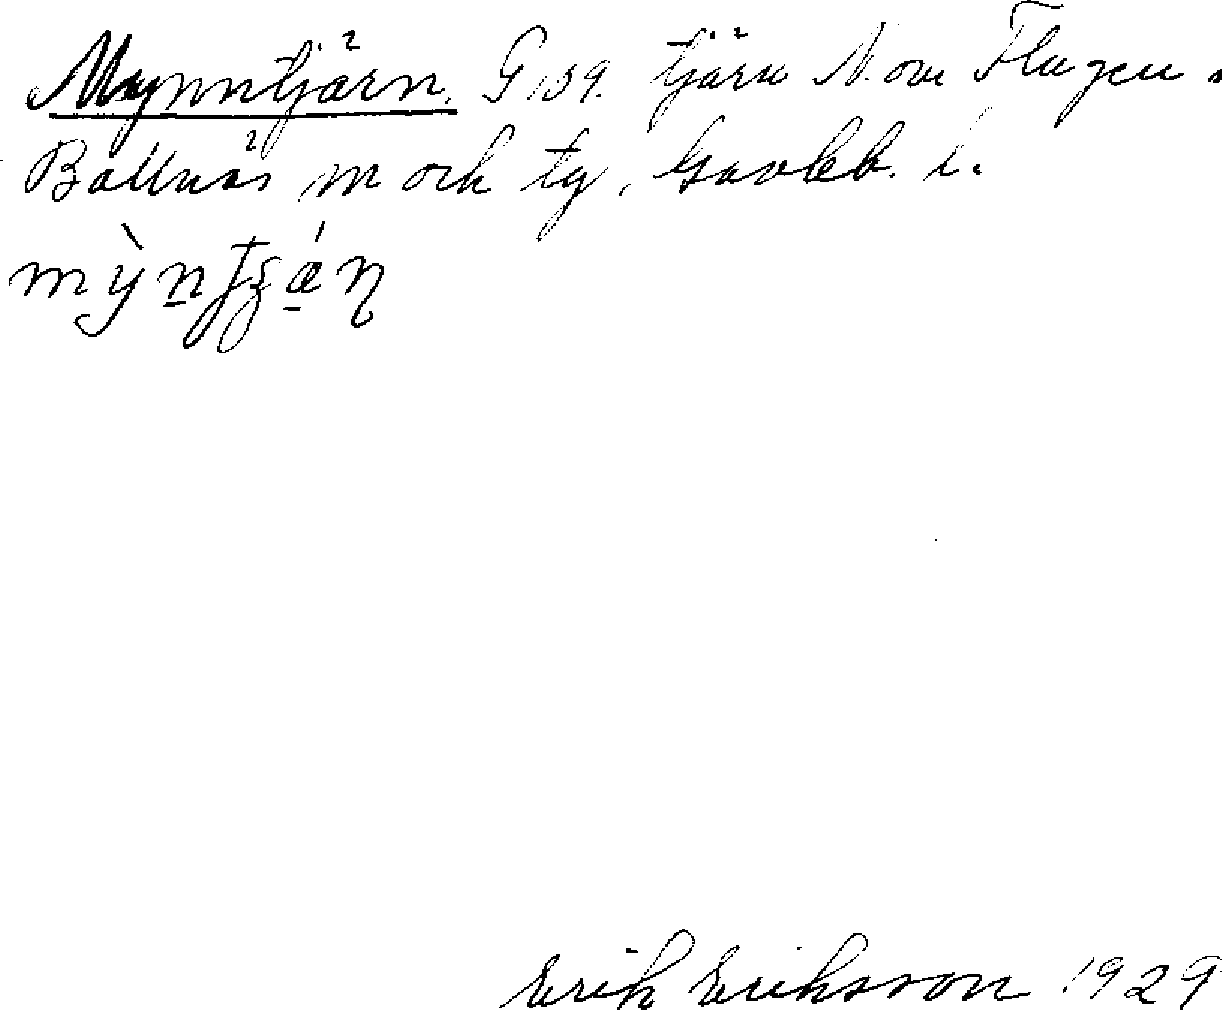 Mynntjärn. G 159. tjärn N. om Flugen.
Bollnäs sn och tg, Gävleb. l.
mỳn
Erik Eriksson 1929